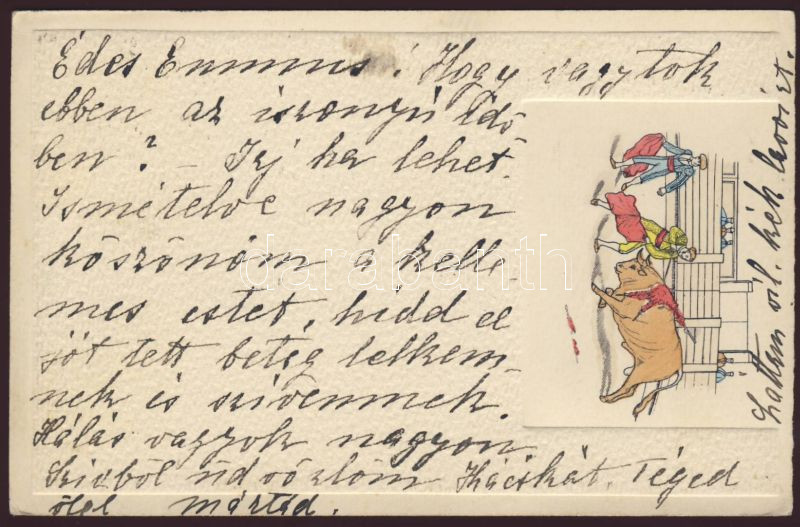 Édes Emmus! Hogy vagytok
ebben az iszonyú idő
ben? – Írj ha lehet.
Ismételve nagyon
köszönöm a kelle
mes estet, hidd el
jót tett beteg lelkem
nek is szivemnek.
Hálás vagyok nagyon.
Szivből üdvözlöm Kácskát. Téged
ölel Mártád.
Láttam vil. kék
darabanth